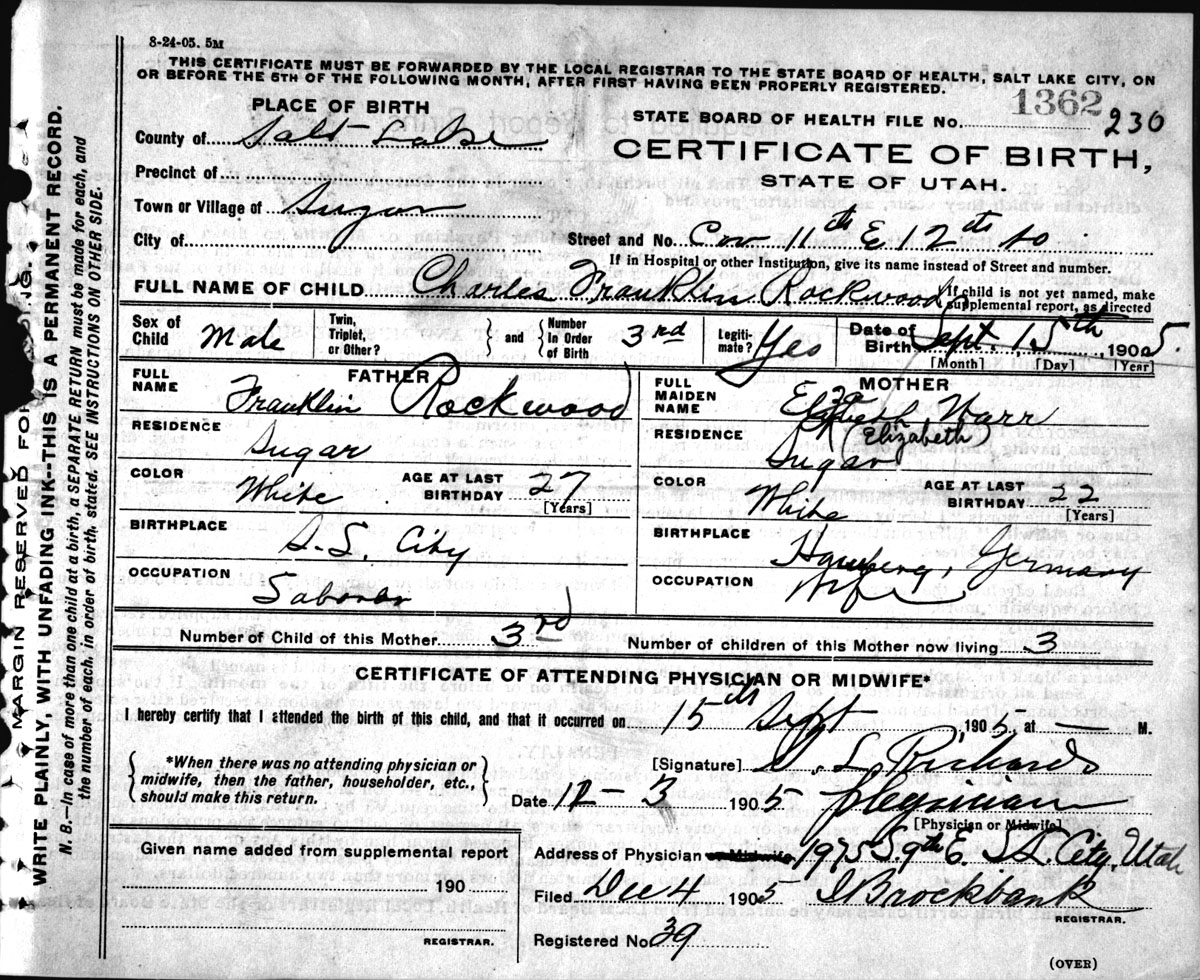 8-24-05. 5M
THIS CERTIFICATE MUST BE FORWARDED BY THE LOCAL REGISTRAR TO THE STATE BOARD OF HEALTH, SALT LAKE CITY, ON
OR BEFORE THE 5TH OF THE FOLLOWING MONTH, AFTER FIRST HAVING BEEN PROPERLY REGISTERED.
PLACE OF BIRTH
STATE BOARD OF HEALTH FILE No. 1362 230
County of Salt Lake
CERTIFICATE OF BIRTH,
STATE OF UTAH.
Precinct of
Town or Village of Sugar
City of
Street and No. Cor 11th E. 12th So
If in Hospital or other Institution, give its name instead of Street and number.
FULL NAME OF CHILD Charles Franklin Rockwood
If child is not yet named, make
supplemental report, as directed
Sex of Child Male
Twin, Triplet, or Other?
and
Number In Order of Birth 3rd
Legiti- mate? Yes
Date of Birth Sept. 15th, 1905.
[Month] [Day] [Year]
FATHER
FULL NAME Franklin Rockwood
RESIDENCE Sugar
COLOR White
AGE AT LAST BIRTHDAY 27
[Years]
BIRTHPLACE S. L. City
OCCUPATION Laborer
MOTHER
FULL MAIDEN NAME Warr
(Elizabeth)
RESIDENCE Sugar
COLOR White
AGE AT LAST BIRTHDAY 22
[Years]
BIRTHPLACE Hamberg, Germany
OCCUPATION Wife
Number of Child of this Mother 3rd
Number of children of this Mother now living 3
CERTIFICATE OF ATTENDING PHYSICIAN OR MIDWIFE*
I hereby certify that I attended the birth of this child, and that it occurred on 15th Sept 1905, at — M.
*When there was no attending physician or
midwife, then the father, householder, etc.,
should make this return.
[Signature] S. L. Richards
Date 12 - 3 1905 physician
[Physician or Midwife]
Given name added from supplemental report
190
REGISTRAR.
Address of Physician or Midwife, 1975 S 9th E. S.L. City, Utah
Filed Dec 4 1905 I Brockbank
REGISTRAR.
Registered No. 39
(OVER)
MARGIN RESERVED FOR
WRITE PLAINLY, WITH UNFADING INK--THIS IS A PERMANENT RECORD.
N. B.—In case of more than one child at a birth, a SEPARATE RETURN must be made for each, and
the number of each, in order of birth, stated. SEE INSTRUCTIONS ON OTHER SIDE.